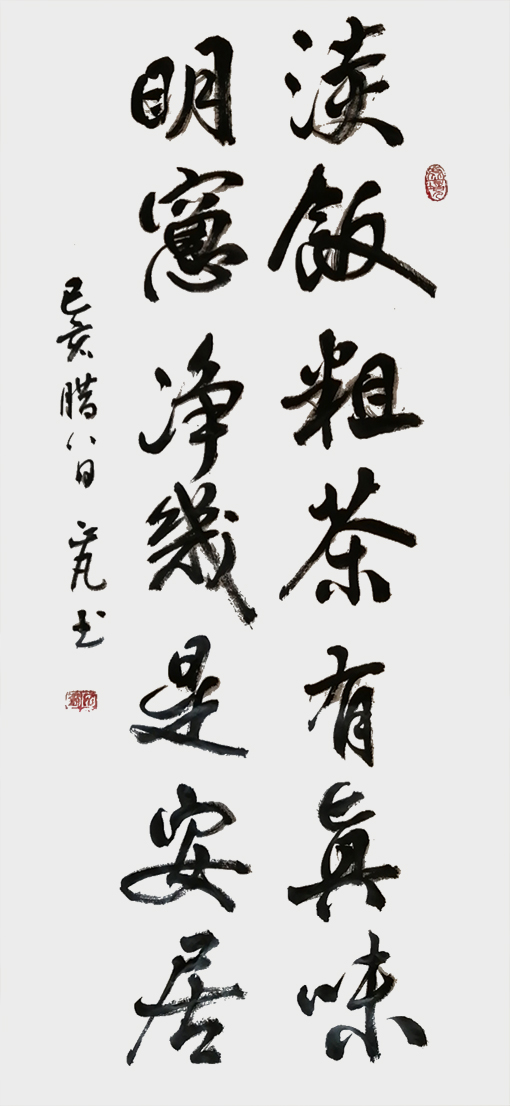 淡飯粗茶有真味
明窻净幾是安居
己亥腊八日
书